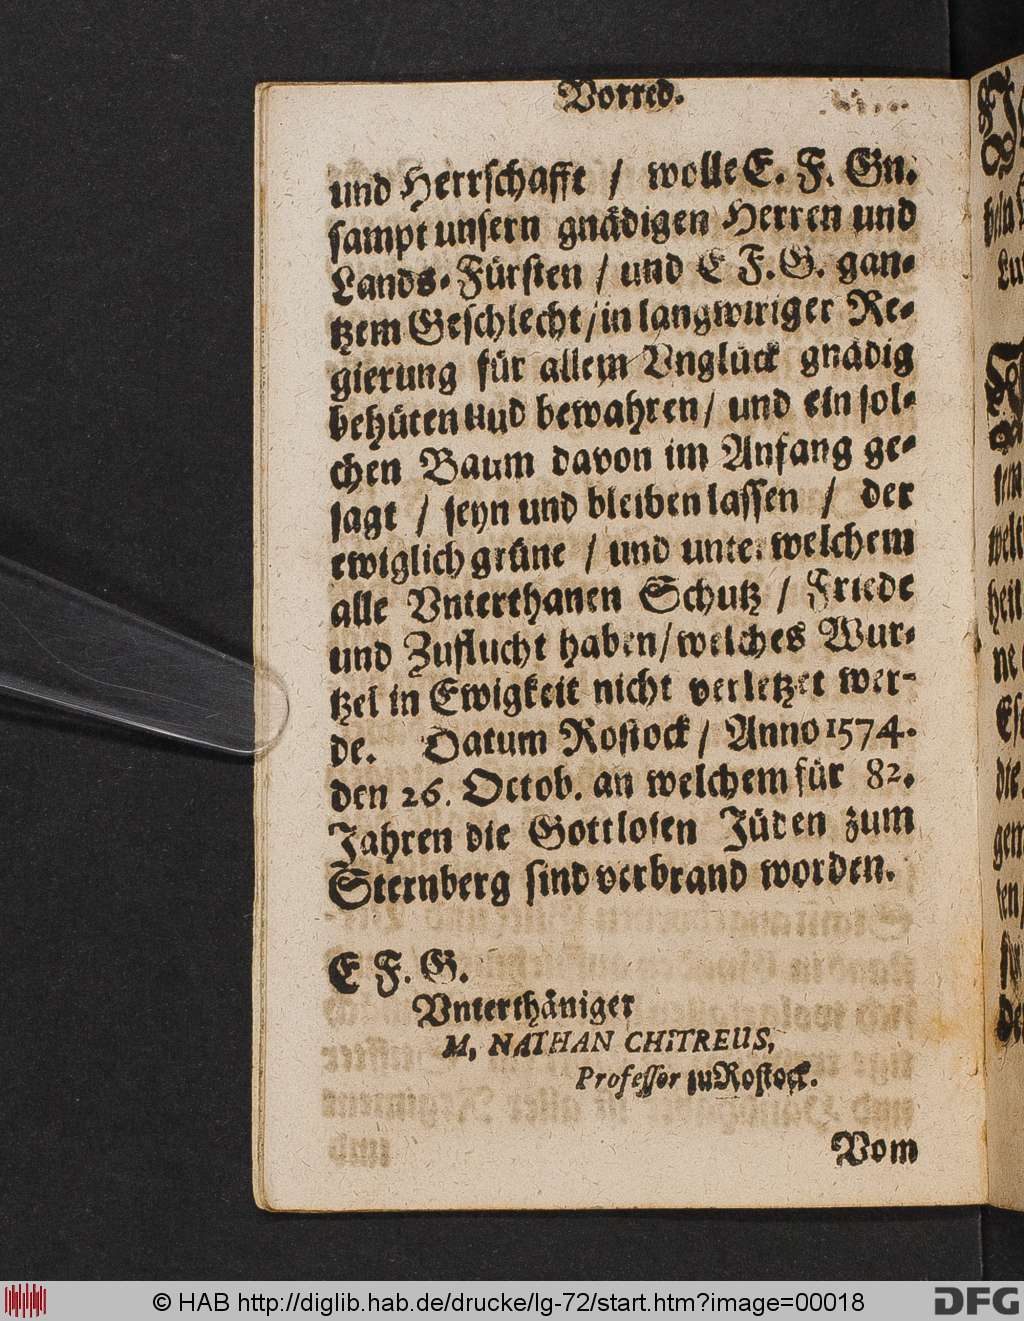 Vorred.
und Herrschafft / wolle E. F. Gn.
sampt unsern gnädigen Herren und
Lands-Fürsten / und E F. G. gan-
tzem Geschlecht / in langwiriger Re-
gierung für allem Vnglück gnädig
behüten uud bewahren / und ein sol-
chen Baum davon im Anfang ge-
sagt / seyn und bleiben lassen / der
ewiglich grüne / und unter welchem
alle Vnterthanen Schutz / Friede
und Zuflucht haben / welches Wur-
tzel in Ewigkeit nicht verletzet wer-
de. Datum Rostock / Anno 1574.
den 26. Octob. an welchem für 82.
Jahren die Gottlosen Jüden zum
Sternberg sind verbrand worden.
E F. G.
Vnterthäniger
M, NATHAN CHiTREUS,
Professor zu Rostock.
Vom
© HAB http://diglib.hab.de/drucke/lg-72/start.htm?image=00018
DFG